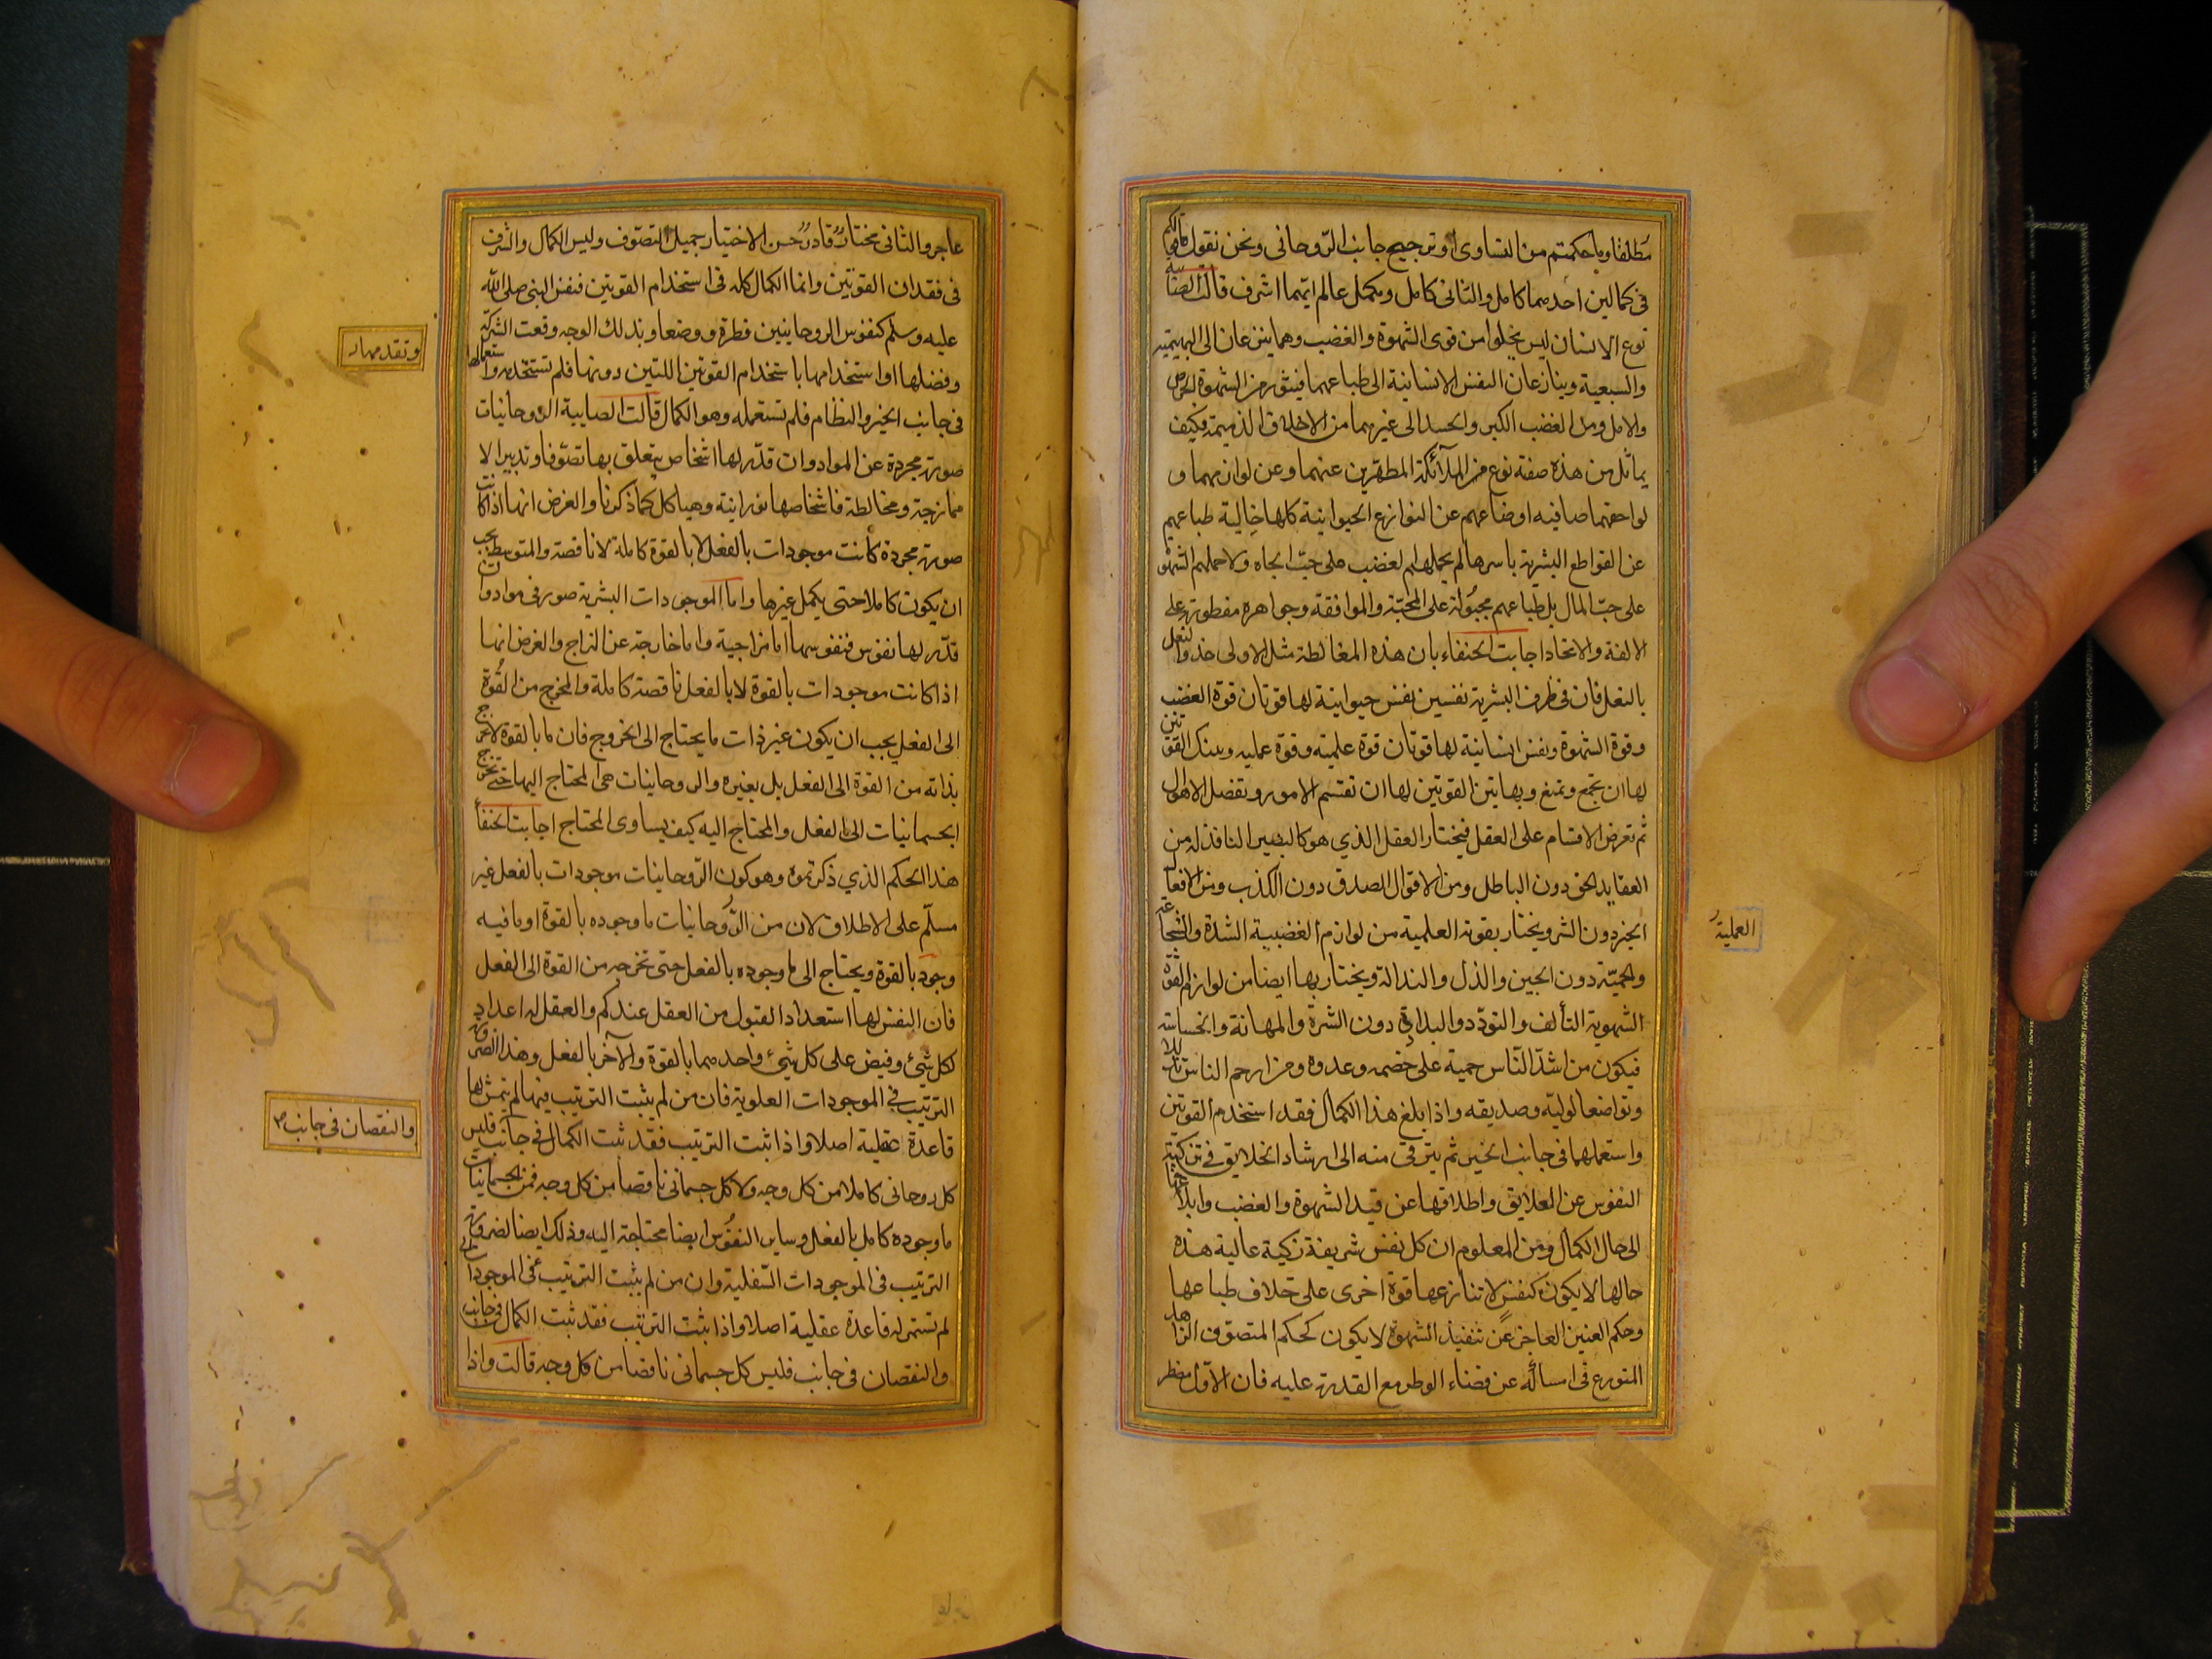 مطلقا وما حكمتم من التساوى او ترجيح جانب الروحانى ونحن نقول ما قولكم
فى كمالين احدهما كامل والثانى كامل ومكمل عالم ايهما اشرف قالت الصابية
نوع الانسان ليس يخلوا من قوى الشهوة والغضب وهما ينزعان الى البهيمية
والسبعية وينازعان النفس الانسانية الى طباعهما فيثور من الشهوة الحرص
والامل ومن الغضب الكبر والحسد الى غيرهما من الاخلاق الذميمة فكيف
يماثل من هذه صفته نوع من الملآئكة المطهرين عنهما وعن لوازمهما و
لواحقهما صافيه اوضاعهم عن النوازع الحيوانية كلها خالية طباعهم
عن القواطع البشرية باسرها لم يحملهم الغضب على حبّ الجاه ولا حملهم الشهوة
على حبّ المال بل طباعهم مجبولة على المحبّة والموافقة وجواهرهم مفطورة على
الالفة والاتحاد اجابت الحنفاء بان هذه المغالطة مثل الاولى حذو النعل
بالنعل فان فى طرف البشرية نفسين نفس حيوانية لها قوتان قوة الغضب
وقوة الشهوة ونفس انسانية لها قوتان قوة علمية وقوة عمليه وبتينك القوتين
لها ان تجمع وتمنع وبهاتين القوتين لها ان تقسم الامور وتفصل الاحوال
ثم تعرض الاقسام على العقل فيختار العقل الذي هو كالبصير النافذ له من
العقايد الحق دون الباطل ومن الاقوال الصدق دون الكذب ومن الافعال
الخير دون الشر ويختار بقوته العلمية من لوازم الغضبية الشدة والشجاعة
العملية
والحميّة دون الجبن والذل والنذالة ويختار بها ايضا من لوازم القوّة
الشهوية التألف والتودد والبذاذة دون الشرة والمهانة والخساسة
فيكون من اشدّ النّاس حمية على خصمه وعدوه ومن ارحم الناس تذللا
وتواضعا لوليّه وصديقه واذا بلغ هذا الكمال فقد استخدم القوتين
واستعملهما فى جانب الخير ثم يترقى منه الى ارشاد الخلايق فى تزكية
النفوس عن العلايق واطلاقها عن قيد الشهوة والغضب وابلاغها
الى حال الكمال ومن المعلوم ان كل نفس شريفة زكية عالية هذه
حالها لا يكون كنفس لا تنازعها قوة اخرى على خلاف طباعها
وحكم العنين العاجز عن تنفيذ الشهوة لا يكون كحكم المتصوف الزاهد
المتورع فى امساكه عن قضاء الوطر مع القدرة عليه فان الاوّل مضطر
عاجر والثانى مختار قادر حسن الاختيار جميل التصوّف وليس الكمال والشرف
فى فقدان القوتين وانما الكمال كله فى استخدام القوتين فنفس النبى صلى الله
عليه وسلم كنفوس الروحانيين فطرة ووضعا وبذلك الوجه وقعت الشركة
وتقدمها له
وفضلها او استخدامها باستخدام القوتين اللتين دونها فلم تستخدمه واستعمالها
فى جانب الخير والنظام فلم تستعمله وهو الكمال قالت الصابية الروحانيات
صورة مجردة عن المواد وان قدّر لها اشخاص يتعلق بها تصوّفا وتدبيرا لا
ممازجة ومخالطة فاشخاصها نورانية وهياكل كما ذكرنا والغرض انها اذا كانت
صورة مجردة كانت موجودات بالفعل لا بالقوة كاملة لا ناقصة والمتوسط يجب
ان يكون كاملا حتى يكمل غيرها واما الموجودات البشرية صور فى مواد وان
قدّر لها نفوس فنفوسها اما مزاجية واما خارجة عن المزاج والغرض انها
اذا كانت موجودات بالقوة لا بالفعل ناقصة كاملة والمخرج من القُوة
الى الفعل يجب ان يكون غير ذات ما يحتاج الى الخروج فان ما بالقوة لا يخرج
بذاته من القوة الى الفعل بل بغيره والروحانيات هى المحتاج اليها حتى تخرج
الجسمانيات الى الفعل والمحتاج اليه كيف يساوى المحتاج اجابت الحنفآ
هذا الحكم الذي ذكرتموه وهو كون الرّوحانيات موجودات بالفعل غير
مسلّم على الاطلاق لان من الرّوحانيات ما وجوده بالقوة او ما فيه
وجود بالقوة ويحتاج الى ما وجوده بالفعل حتى تخرجه من القوة الى الفعل
فان النفس لها استعداد القبول من العقل عندكم والعقل له اعداد
لكل شئ وفيض على كل شئ واحدهما بالقوة والآخر بالفعل وهذا لضرورة
الترتيب فى الموجودات العلوية فان من لم يثبت الترتيب فيها لم يتمش لها
قاعدة عقلية اصلا واذا ثبت الترتيب فقد ثبت الكمال فى جانب فليس
والنقصان فى جانب
كل روحانى كاملا من كل وجه ولا كل جسمانى ناقصا من كل وجه فمن الجسمانيات
ما وجوده كامل بالفعل وساير النفوس ايضا محتاجة اليه وذلك ايضا لضرورة
الترتيب فى الموجودات السّفلية وان من لم يثبت الترتيب فى الموجودات
لم تستمر له قاعدة عقلية اصلا واذا ثبت الترتيب فقد ثبت الكمال فى جانب
والنقصان فى جانب فليس كل جسمانى ناقصا من كل وجه قالت واذا